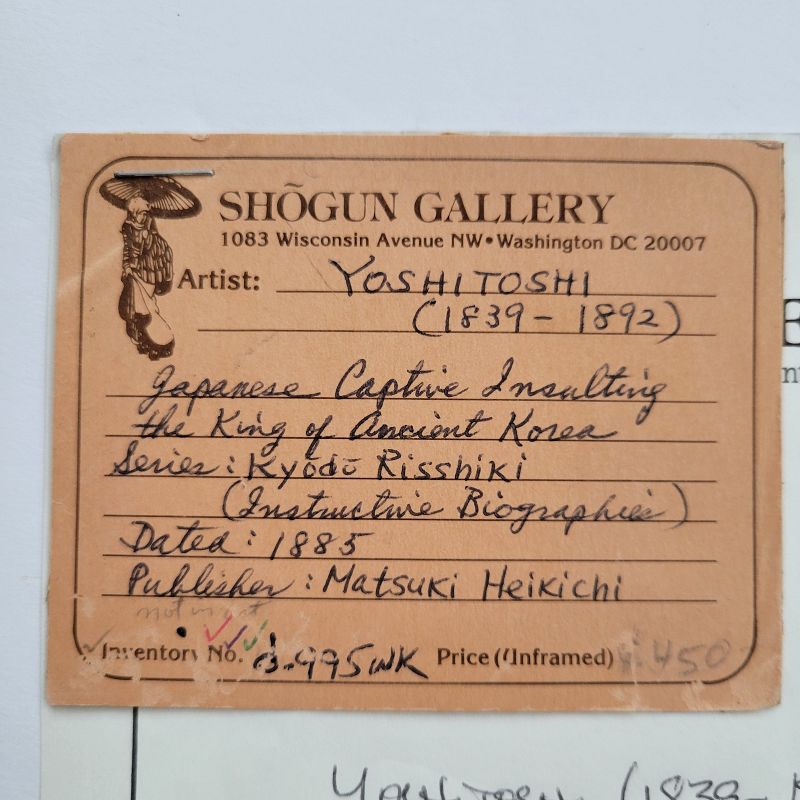 SHŌGUN GALLERY
1083 Wisconsin Avenue NW•Washington DC 20007
Artist: YOSHITOSHI
(1839 - 1892)
Japanese Captive Insulting
the King of Ancient Korea
Series: Kyōdō Risshiki
(Instructive Biographies)
Dated: 1885
Publisher: Matsuki Heikichi
not in
Inventory No. 3-995WK Price (Unframed) $450
(1839-